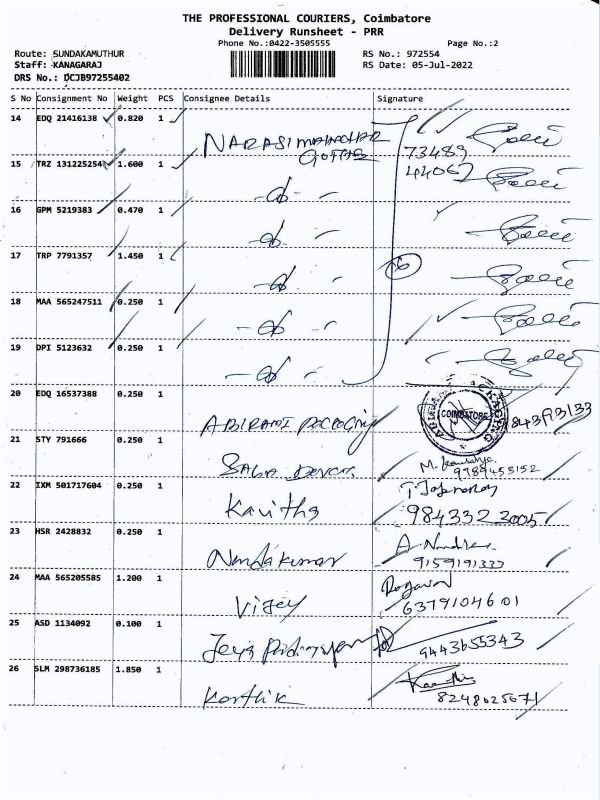 THE PROFESSIONAL COURIERS, Coimbatore
Delivery Runsheet - PRR
Phone No.:0422-3505555 Page No.:2
Route: SUNDAKAMUTHUR RS No.: 972554
Staff: KANAGARAJ RS Date: 05-Jul-2022
DRS No.: DCJB97255402
S No Consignment No Weight PCS Consignee Details Signature
14 EDQ 21416138 0.820 1
73489
15 TRZ 131225254 1.600 1 44067
16 GPM 5219383 0.470 1
17 TRP 7791357 1.450 1 6
18 MAA 565247511 0.250 1
19 DPI 5123632 0.250 1
20 EDQ 16537388 0.250 1 ABIRAMI
COIMBATORE
21 STY 791666 0.250 1
9789453152
22 IXM 501717604 0.250 1 Kavitha
9843322005
23 HSR 2428832 0.250 1 Nandakumar
9159191333
24 MAA 565205585 1.200 1 Vijey
6379104601
25 ASD 1134092 0.100 1
9443655343
26 SLM 298736185 1.850 1 Karthik
8248025671